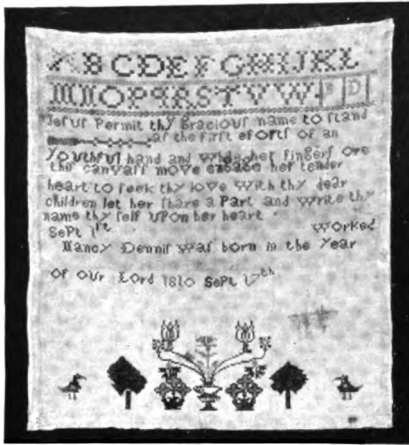 A B C D E F G H I J K L
M N O P Q R S T V W
Jesus Permit thy Gracious name to stand
as the first efforts of an
Youthful hand and while her fingers ore
the canvass move engage her tender
heart to seek thy love with thy dear
children let her share a Part and write thy
name thy self upon her heart
Sept 1st worked
Nancy Dennis was born in the Year
of our Lord 1810 Sept 17th